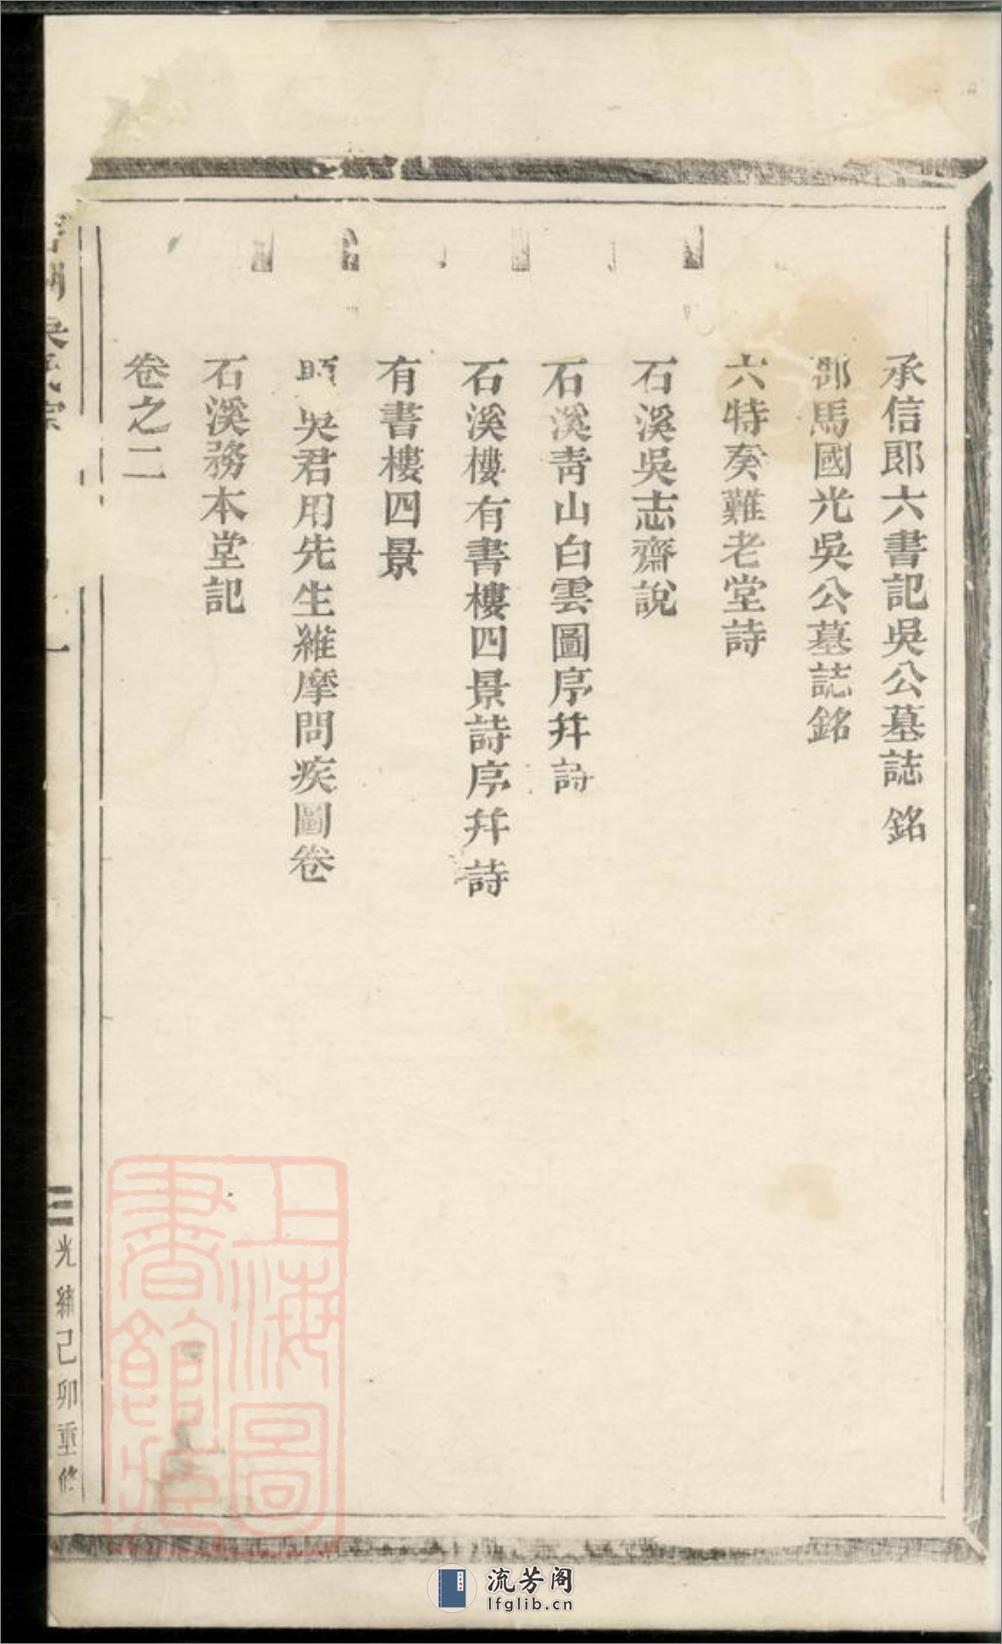 承信郎六書記吳公墓誌銘
郡馬國光吳公墓誌銘
六特奏難老堂詩
石溪吳志齋說
石溪靑山白雲圖序并詩
石溪樓有書樓四景詩序并詩
有書樓四景
吳君用先生維摩問疾圖卷
石溪務本堂記
卷之二
吳氏宗
光緖己卯重修
上海圖書館藏
流芳阁
lfglib.cn